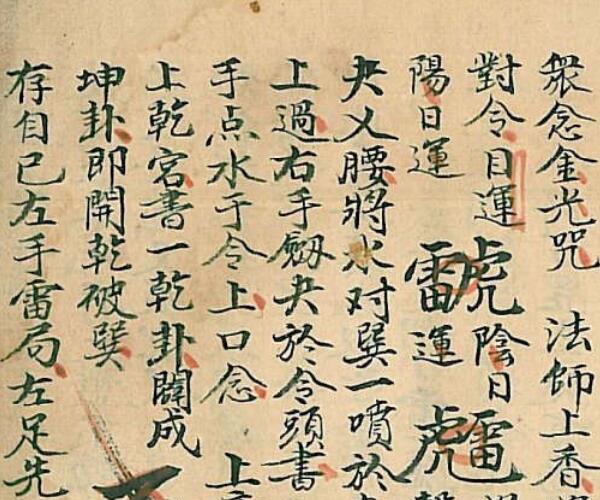 衆念金光咒 法師上香
對令日運虎陰日雷
陽日運雷運虎
夬乂腰將水对巽一噴於
上過右手劔夬於令頭書
手点水于令上口念 上
上乾宮書一乾卦開成
坤卦即開乾破巽
存自已左手雷局左足先